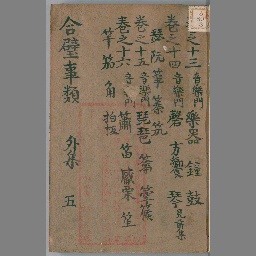 卷之十三 音樂門 樂器 鐘 鼓
卷之十四 音樂門 磬 方響 琴 見前集
琵 阮 箏 築 筑
卷之十五 音樂門 琵琶 簫 箜篌
卷之十六 音樂門 簫 笛 觱栗 笙
竽 笳 角 拍板
合璧事類 外集 五